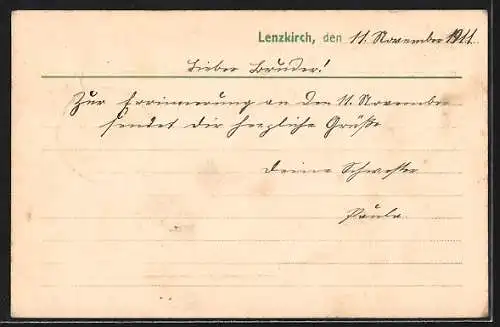 Lenzkirch, den 11. November 1911.
Lieber Bruder!
Zur Errinnerung an den 11. November
sendet dir herzliche Grüße
Deine Schwester
Paula